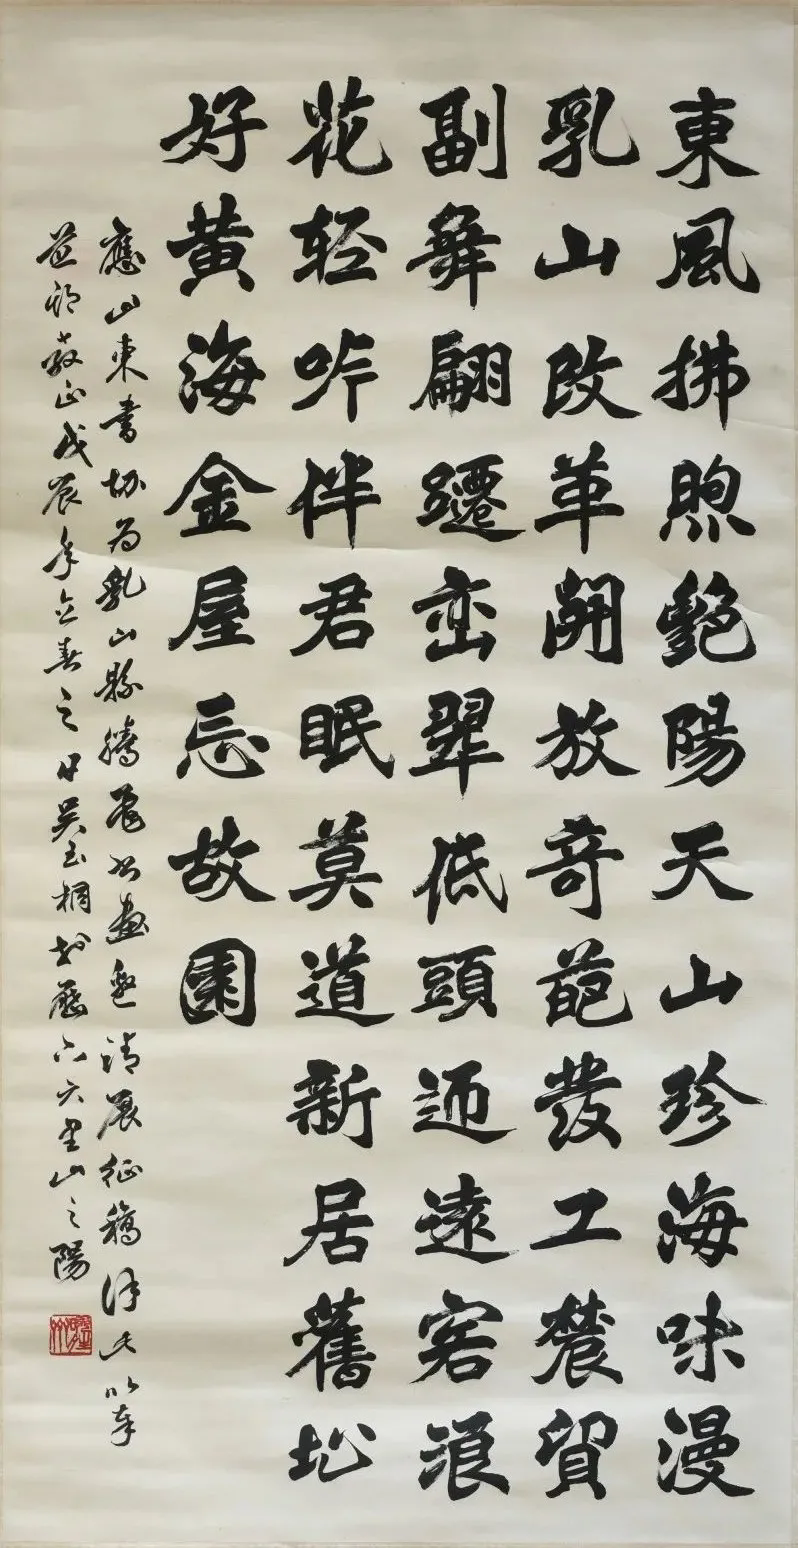 東風拂煦艷陽天山珍海味漫
乳山改革開放奇葩發工農貿
副舞翩躚峦翠低頭迎遠客浪
花轻吟伴君眠莫道新居舊圸
好黄海金屋忘故園
應山東書协为乳山縣騰飛书畫邀请展征稿作此以奉
並祈教正戊辰年立春之日吴玉桐於歷下六里山之陽